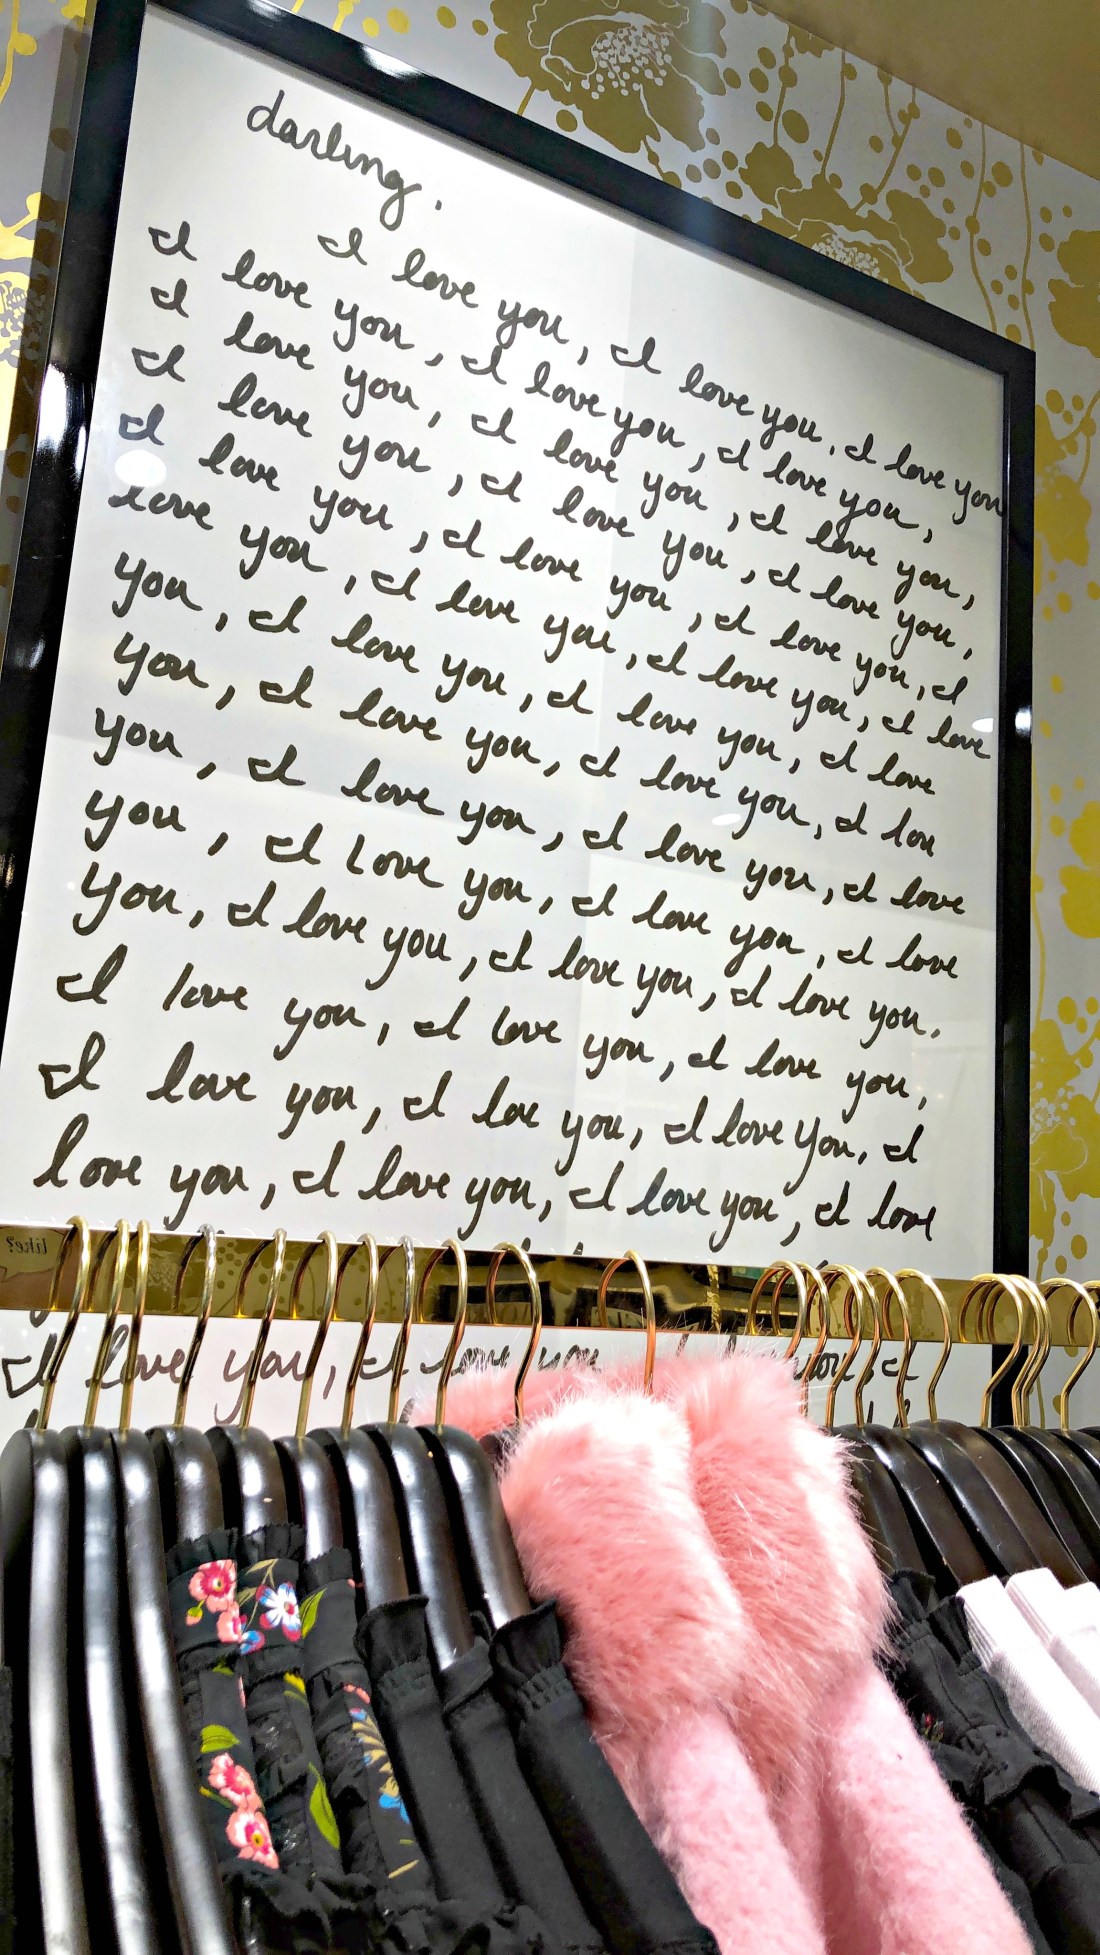 darling.
I love you, I love you, I love you
I love you, I love you, I love you,
I love you, I love you, I love you,
I love you, I love you, I love you,
I love you, I love you, I love you, I
love you, I love you, I love you, I love
you, I love you, I love you, I love
you, I love you, I love you, I lou
you, I love you, I love you, I love
you, I love you, I love you, I love
you, I love you, I love you, I love you.
I love you, I love you, I love you,
I love you, I love you, I love you, I
love you, I love you, I love you, I love
like?
I love you, I love you you, I